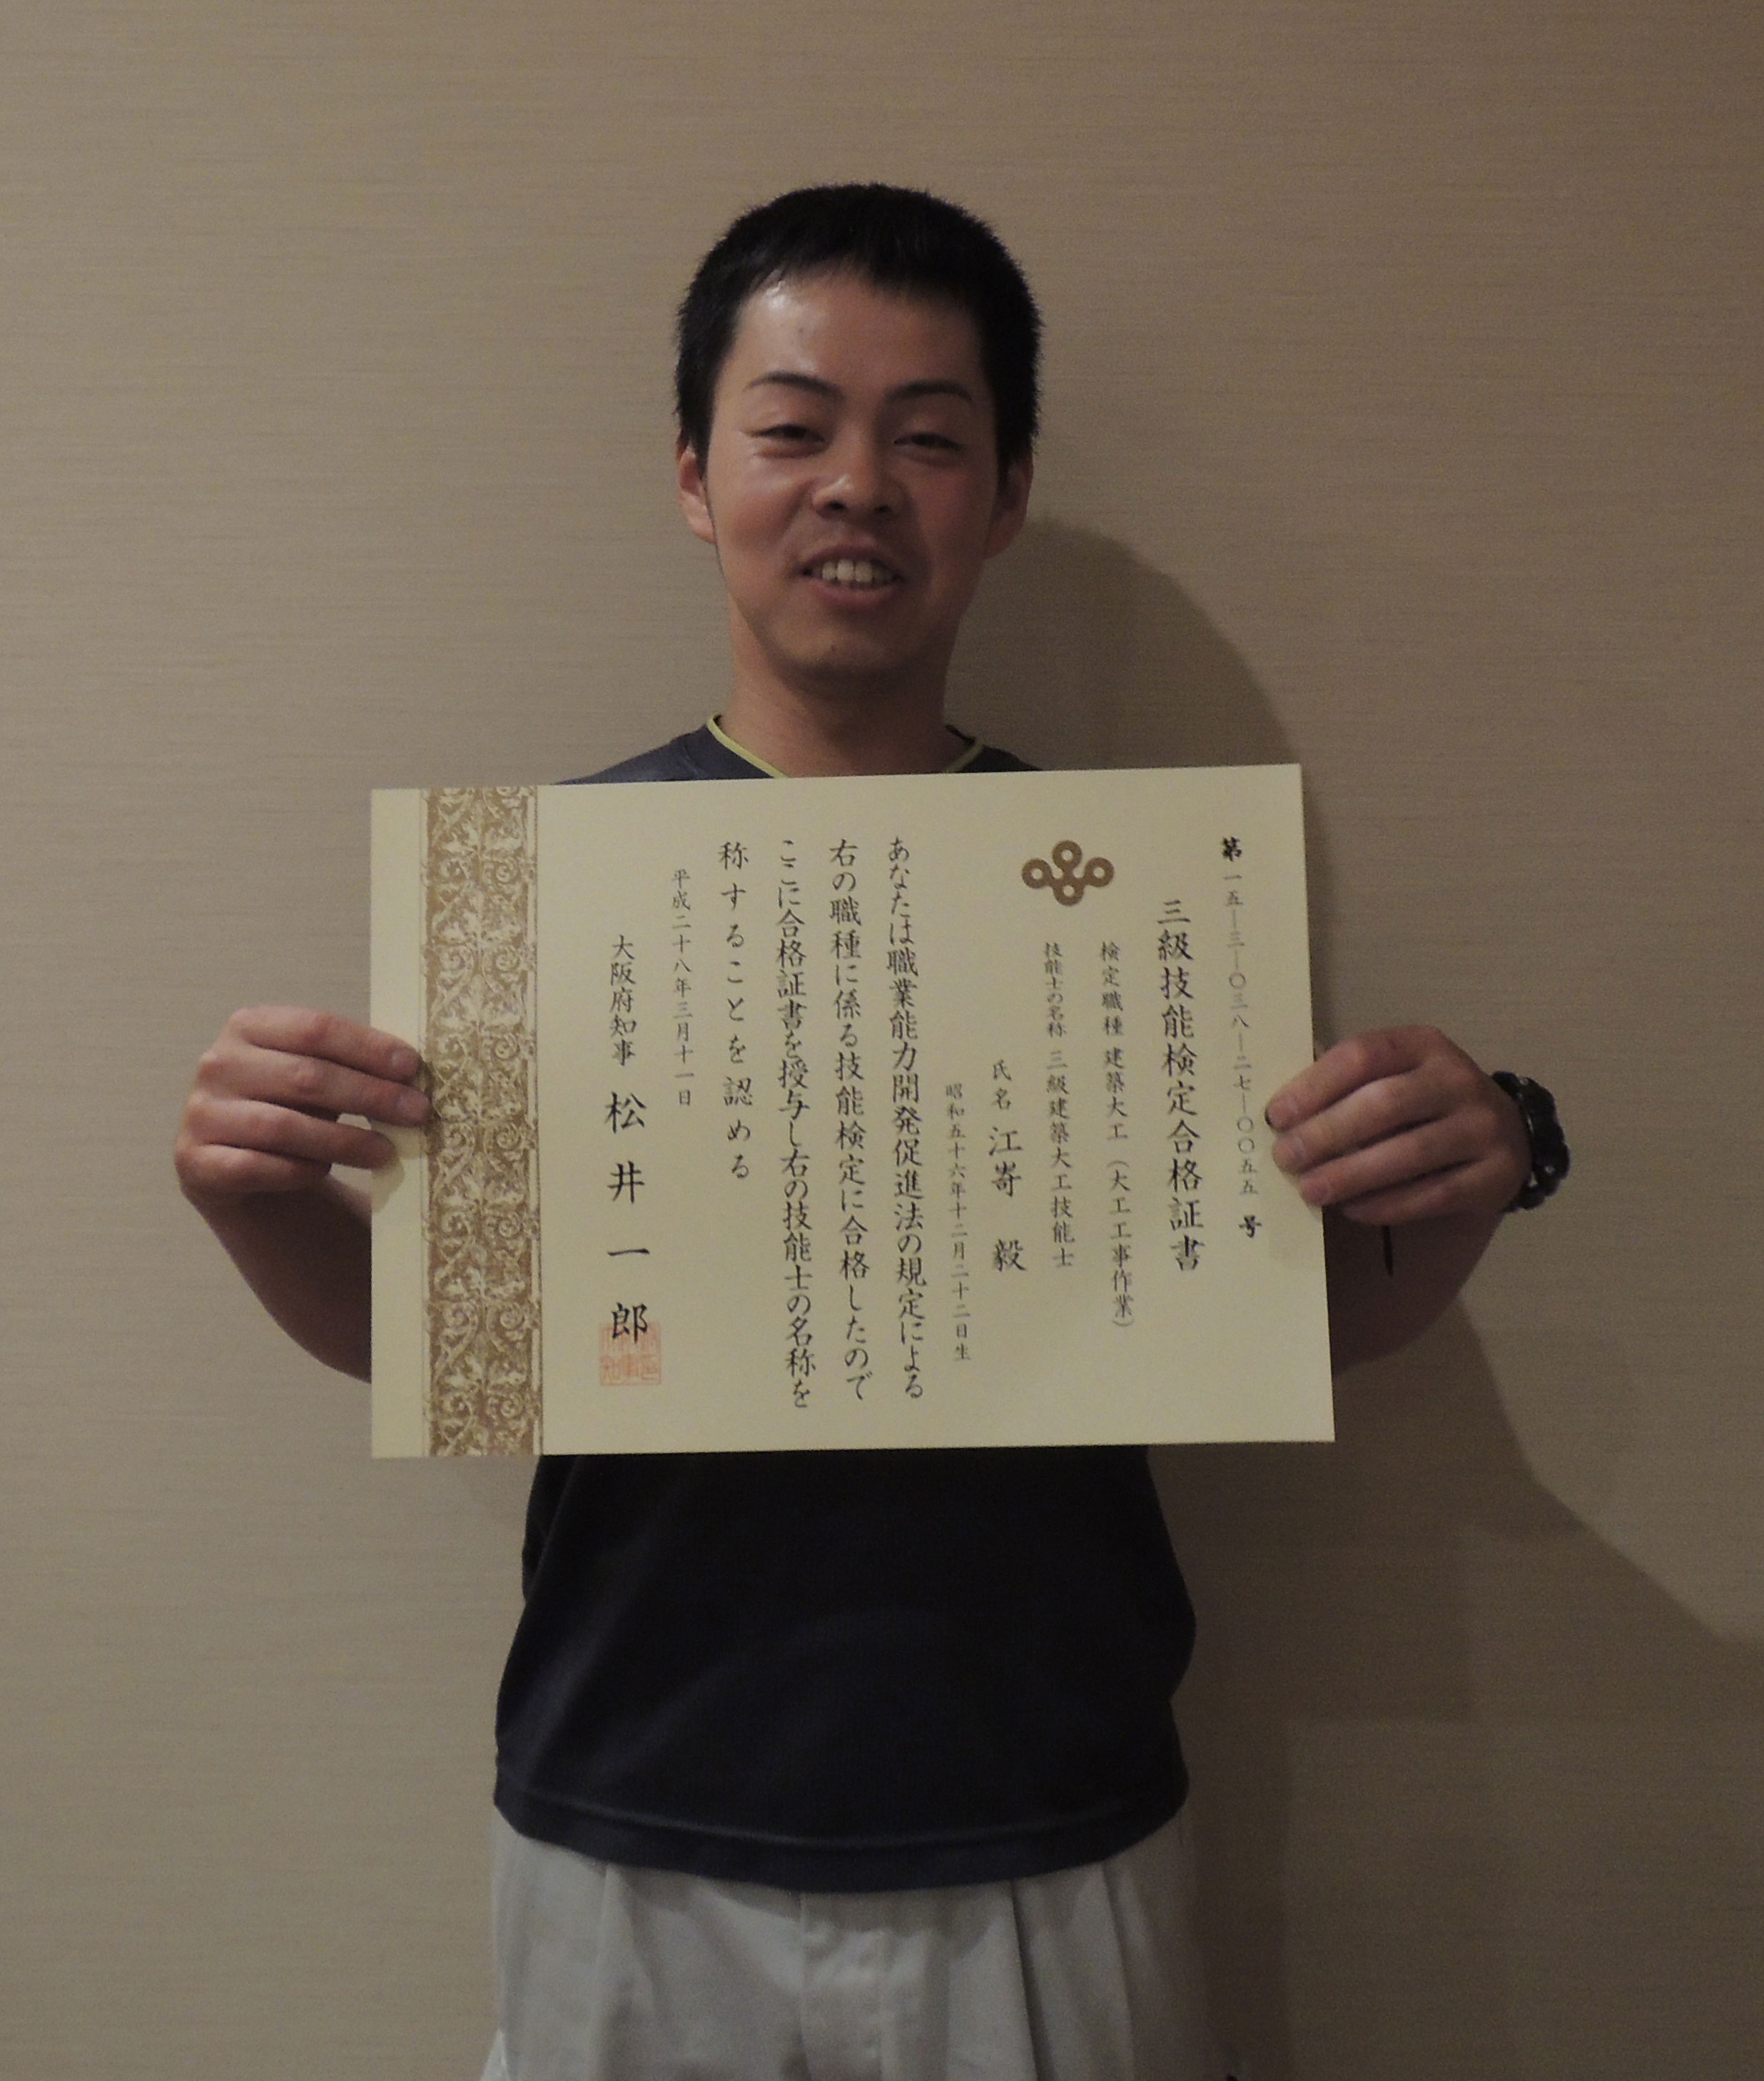 第一五―三―〇三八―二七―〇〇五五号
三級技能検定合格証書
検定職種 建築大工（大工工事作業）
技能士の名称 三級建築大工技能士
氏名 江嵜 毅
昭和五十六年十二月二十二日生
あなたは職業能力開発促進法の規定による
右の職種に係る技能検定に合格したので
ここに合格証書を授与し右の技能士の名称を
称することを認める
平成二十八年三月十一日
大阪府知事 松井一郎